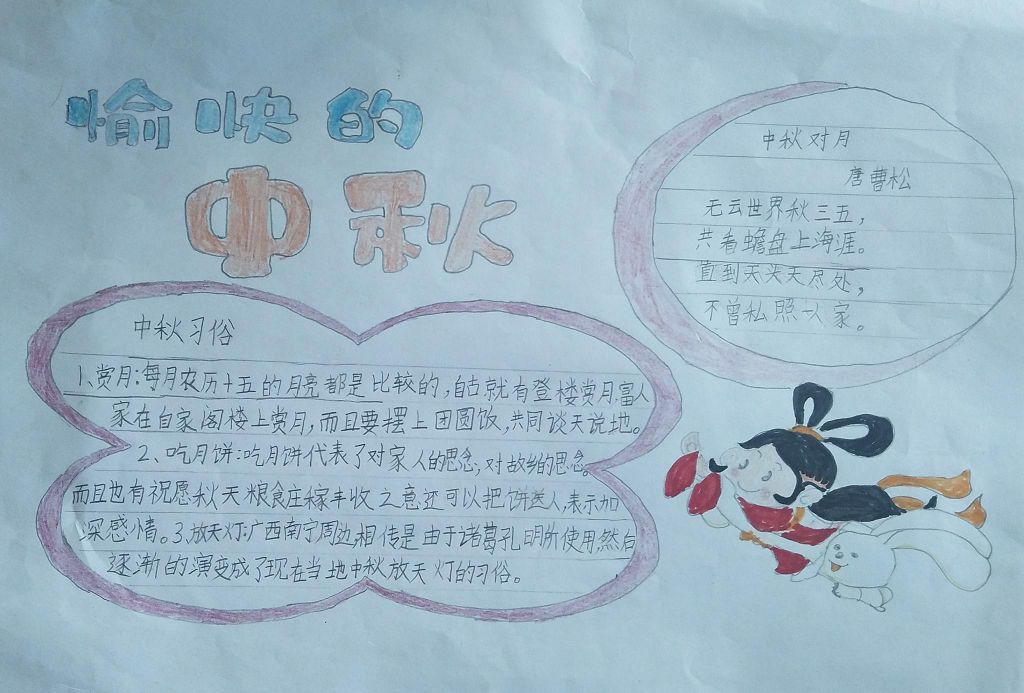 愉快的
中秋
中秋对月
唐曹松
无云世界秋三五，
共看蟾盘上海涯。
直到天头天尽处，
不曾私照一人家。
中秋习俗
1、赏月：每月农历十五的月亮都是比较的，自古就有登楼赏月，富人
家在自家阁楼上赏月，而且要摆上团圆饭，共同谈天说地。
2、吃月饼：吃月饼代表了对家人的思念，对故乡的思念。
而且也有祝愿秋天粮食庄稼丰收之意还可以把饼送人，表示加
深感情。3、放天灯：广西南宁周边，相传是由于诸葛孔明所使用，然后
逐渐的演变成了现在当地中秋放天灯的习俗。